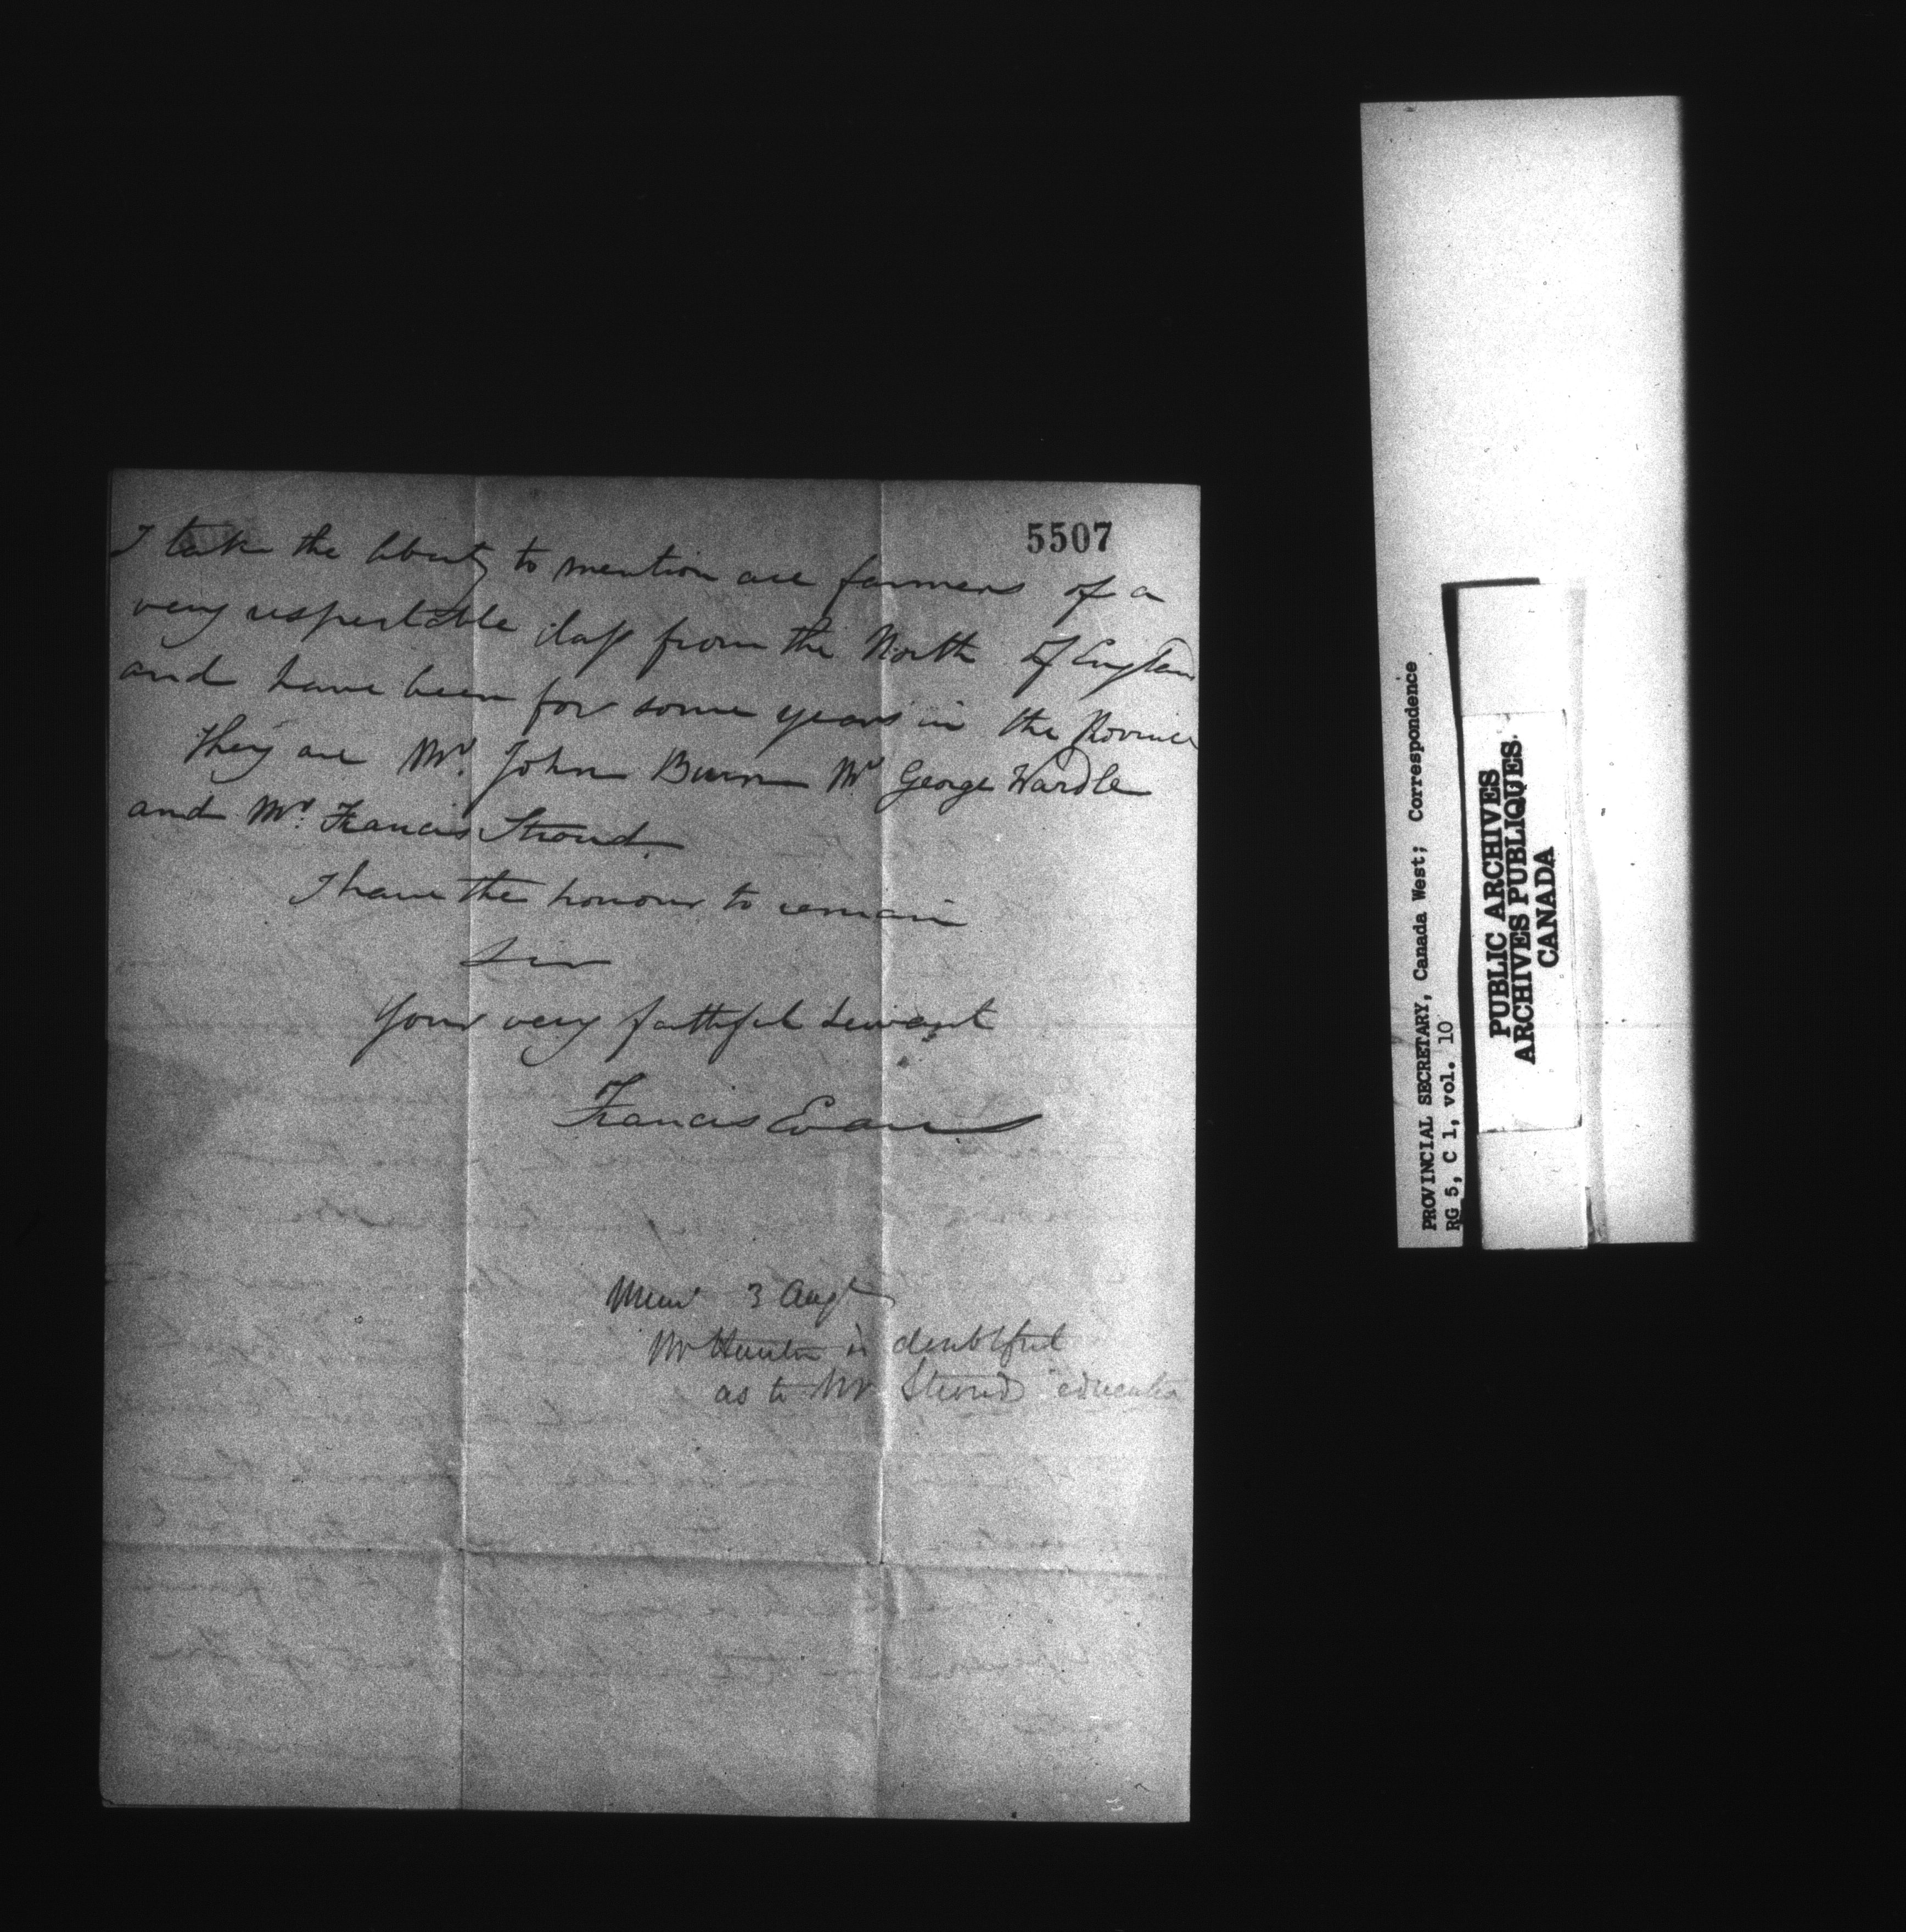 5507
I take the liberty to mention are farmers of a
very respectable class from the North of England
and have been for some years in the Province
They are Mr. John Burn Mr George Wardle
and Mr. Francis Stroud.
I have the honour to remain
Sir
Your very faithful Servant
Francis Evans
3 Augt
Mr Hunter is doubtful
as to Mr Strouds education
PROVINCIAL SECRETARY, Canada West; Correspondence
RG 5, C 1, vol. 10
PUBLIC ARCHIVES
ARCHIVES PUBLIQUES
CANADA